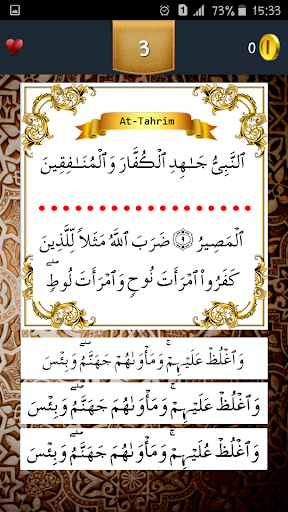 15:33
3
0
At-Tahrim
ٱلنَّبِىُّ جَـٰهِدِ ٱلْكُفَّارَ وَٱلْمُنَـٰفِقِينَ
ٱلْمَصِيرُ ۝٩ ضَرَبَ ٱللَّهُ مَثَلًا لِّلَّذِينَ
كَفَرُوا۟ ٱمْرَأَتَ نُوحٍ وَٱمْرَأَتَ لُوطٍ ۖ
وَٱغْلُظْ عَلَيْهِمْ ۚ وَمَأْوَىٰهُمْ جَهَنَّمُ ۖ وَبِئْسَ
وَٱغْلُظْ عَلَيْهِمْ ۚ وَمَأْوَىٰهُمْ جَهَتَّمُ ۖ وَبِئْسَ
وَٱغْلُظْ عُلَيْهِمْ ۚ وَمَأْوَىٰهُمْ جَهَنَّمُ ۖ وَبِئْسَ